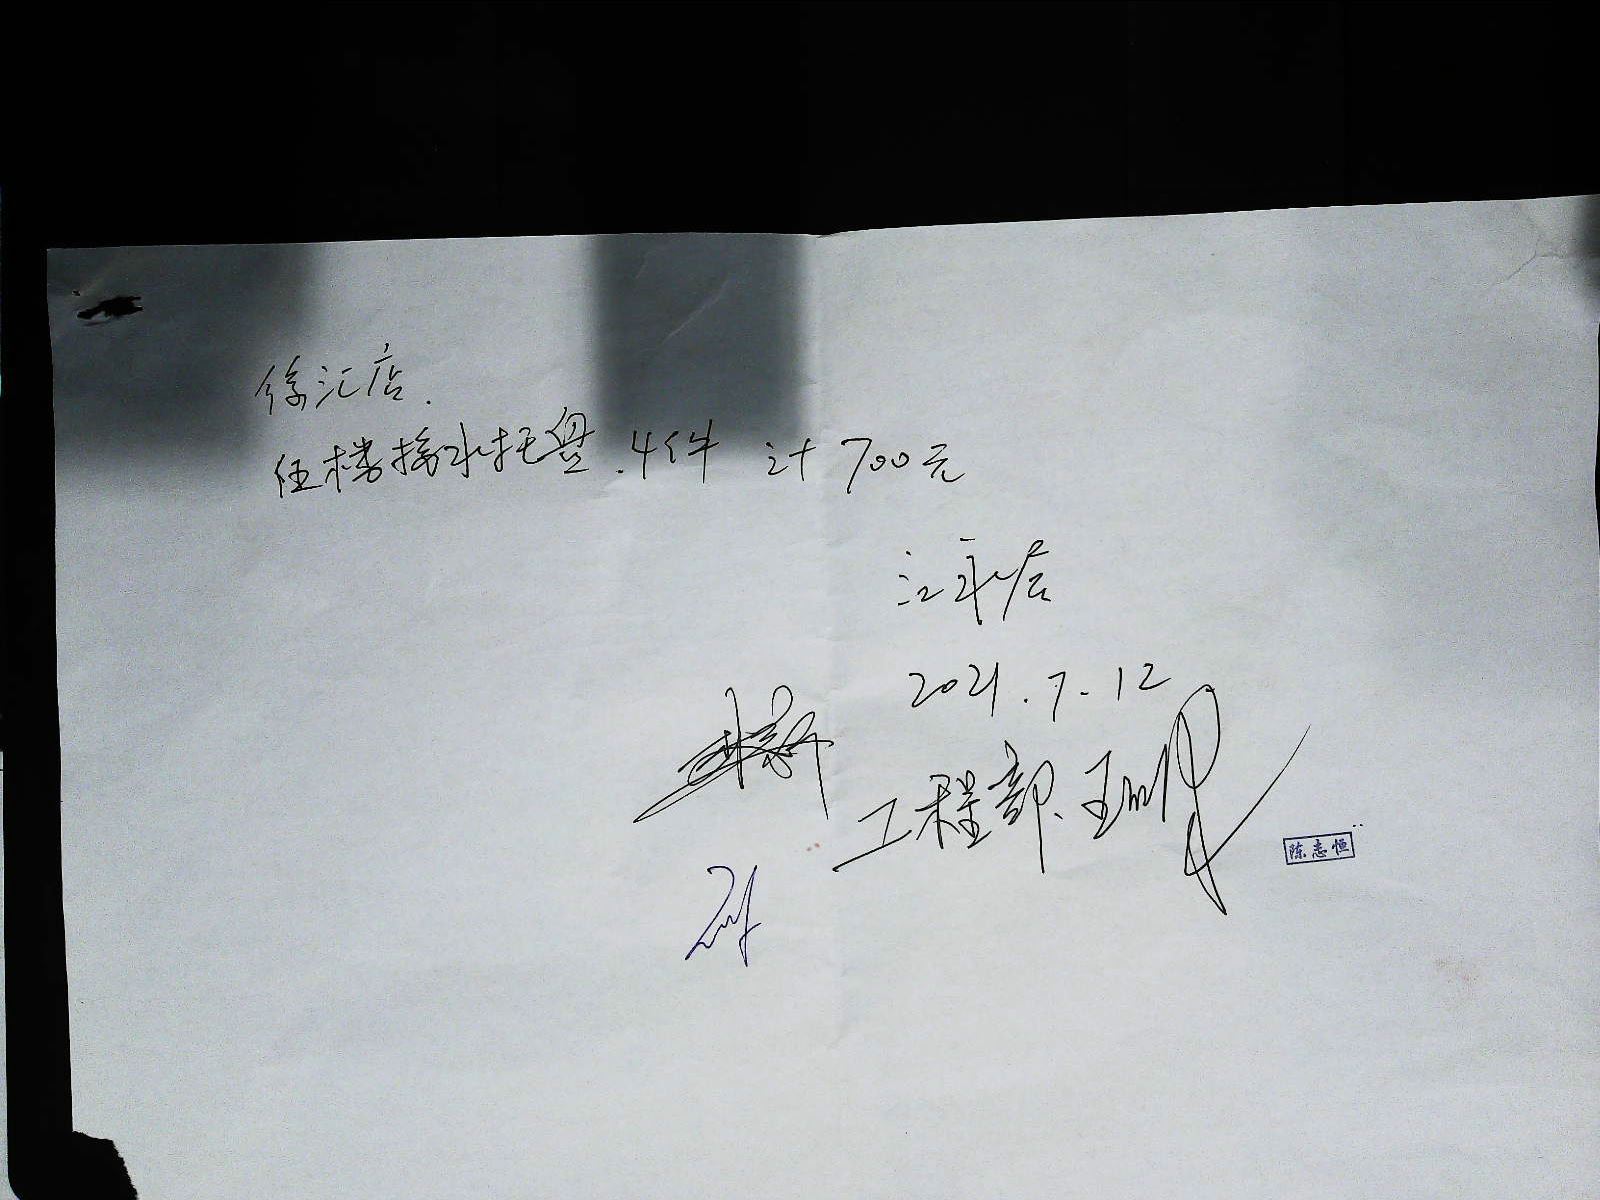 徐汇店.
任楼接水托盘.4件 计700元
2021.7.12
工程部、王
陈志恒